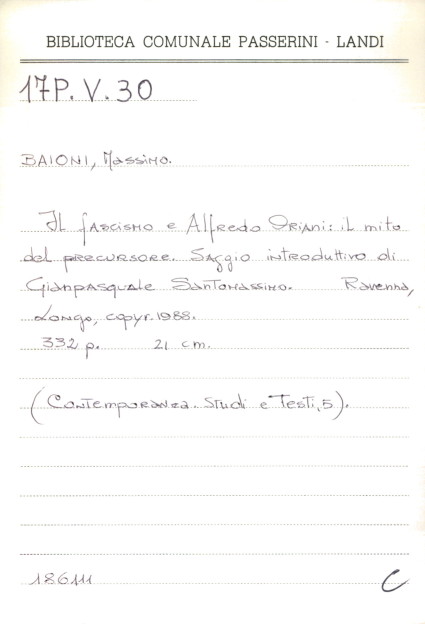 BIBLIOTECA COMUNALE PASSERINI - LANDI
17P. V. 30
BAIONI, Massimo.
Il fascismo e Alfredo Oriani: il mito
del precursore. Saggio introduttivo di
Gianpasquale Santomassimo. Ravenna,
Longo, copyr. 1988.
332 p. 21 cm.
(Contemporanea. Studi e Testi, 5).
186111
C